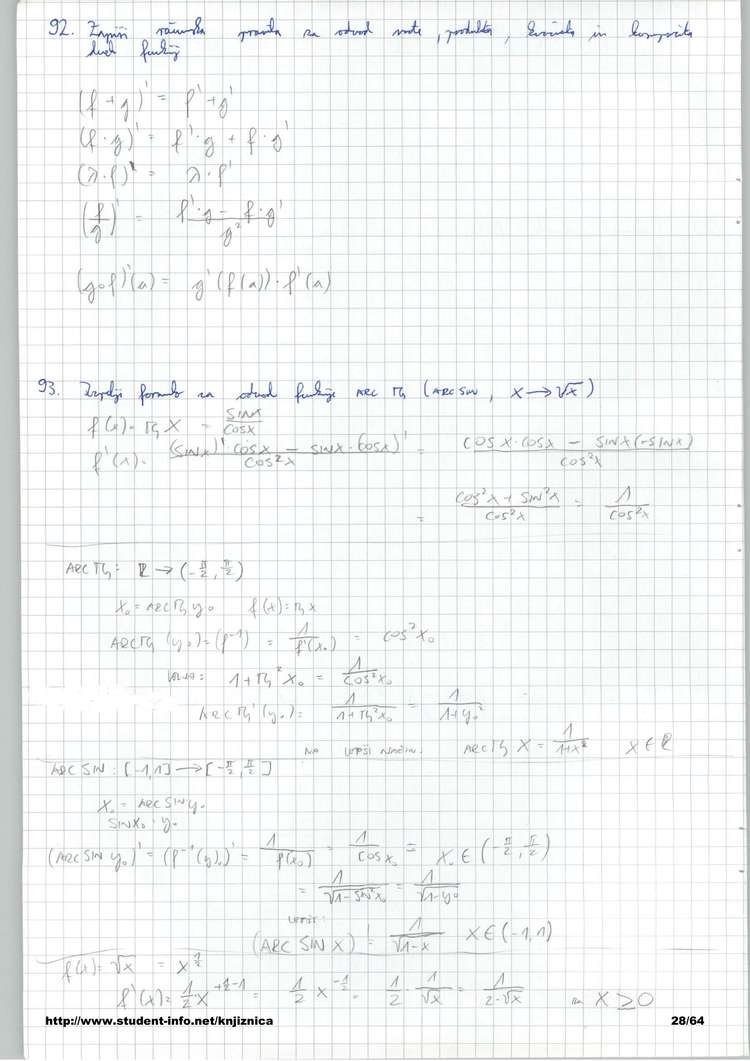 92. Zapiši računska pravila za odvod vsote, produkta, kvocienta in kompozita
dveh funkcij
(f + g)' = f' + g'
(f · g)' = f' · g + f · g'
(λ · f)' = λ · f'
(f/g)' = (f' · g - f · g')/g²
(g∘f)'(a) = g'(f(a)) · f'(a)
93. Izpelji formulo za odvod funkcije ARC TG (ARC SIN, X → √x)
f(x) = TG X = SINX/COSX
f'(x) = ((SINX)' COSX - SINX · (COSX)')/COS²X = (COSX · COSX - SINX(-SINX))/COS²X
= (COS²X + SIN²X)/COS²X = 1/COS²X
ARCTG: R → (-π/2, π/2)
X₀ = ARCTG y₀ f(x) = TG X
ARCTG'(y₀) = (f⁻¹) = 1/f'(X₀) = COS²X₀
1 + TG²X₀ = 1/COS²X₀
ARCTG'(y₀) = 1/(1+TG²X₀) = 1/(1+y₀²)
NA LEPŠI NAČIN: ARCTG X = 1/(1+X²) X ∈ R
ARCSIN: [-1,1] → [-π/2, π/2]
X₀ = ARCSIN y₀
SINX₀ = y₀
(ARCSIN y₀)' = (f⁻¹(y₀))' = 1/f(X₀) = 1/COSX₀ = X₀ ∈ (-π/2, π/2)
= 1/√(1-SIN²X₀) = 1/√(1-y₀)
LEPŠE:
(ARCSIN X)' = 1/√(1-X) X ∈ (-1,1)
f(x) = √x = X^(1/2)
f'(x) = 1/2 X^(+1/2-1) = 1/2 X^(-1/2) = 1/2 · 1/√x = 1/(2·√x) za X ≥ 0
http://www.student-info.net/knjiznica 28/64